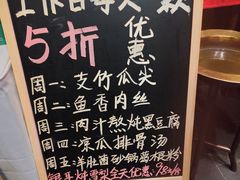 工作日每天一款
5折优惠
周一:支竹瓜尖
周二:鱼香肉丝
周三:肉汁熬炖黑豆腐
周四:凉瓜排骨汤
周五:羊肚菌砂锅
银耳炖雪梨全天优惠:9.8元/份